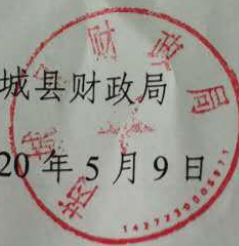 城县财政局
20年5月9日
财政局